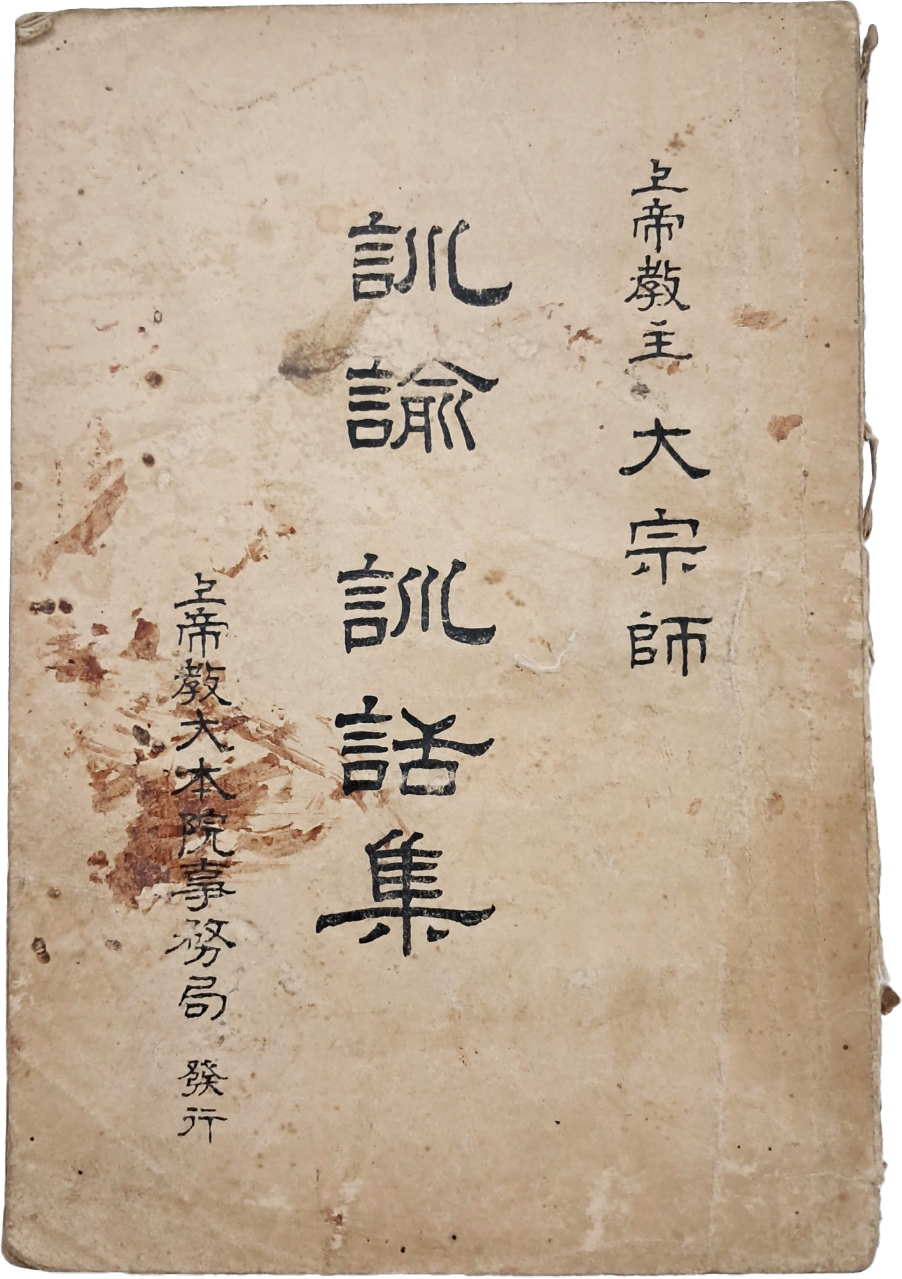 上帝教主 大宗師
訓諭訓話集
上帝教大本院事務局 發行